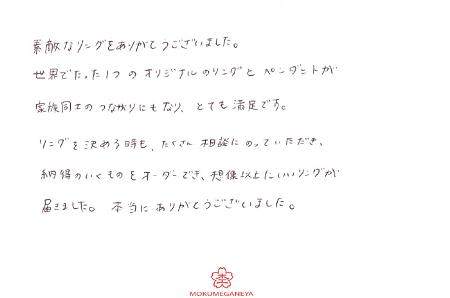 素敵なリングをありがとうございました。
世界でたった1つのオリジナルのリングとペンダントが
家族同士のつながりにもなり、とても満足です。
リングを決める時も、たくさん相談にのっていただき、
納得のいくものをオーダーでき、想像以上にいいリングが
届きました。本当にありがとうございました。
MOKUMEGANEYA